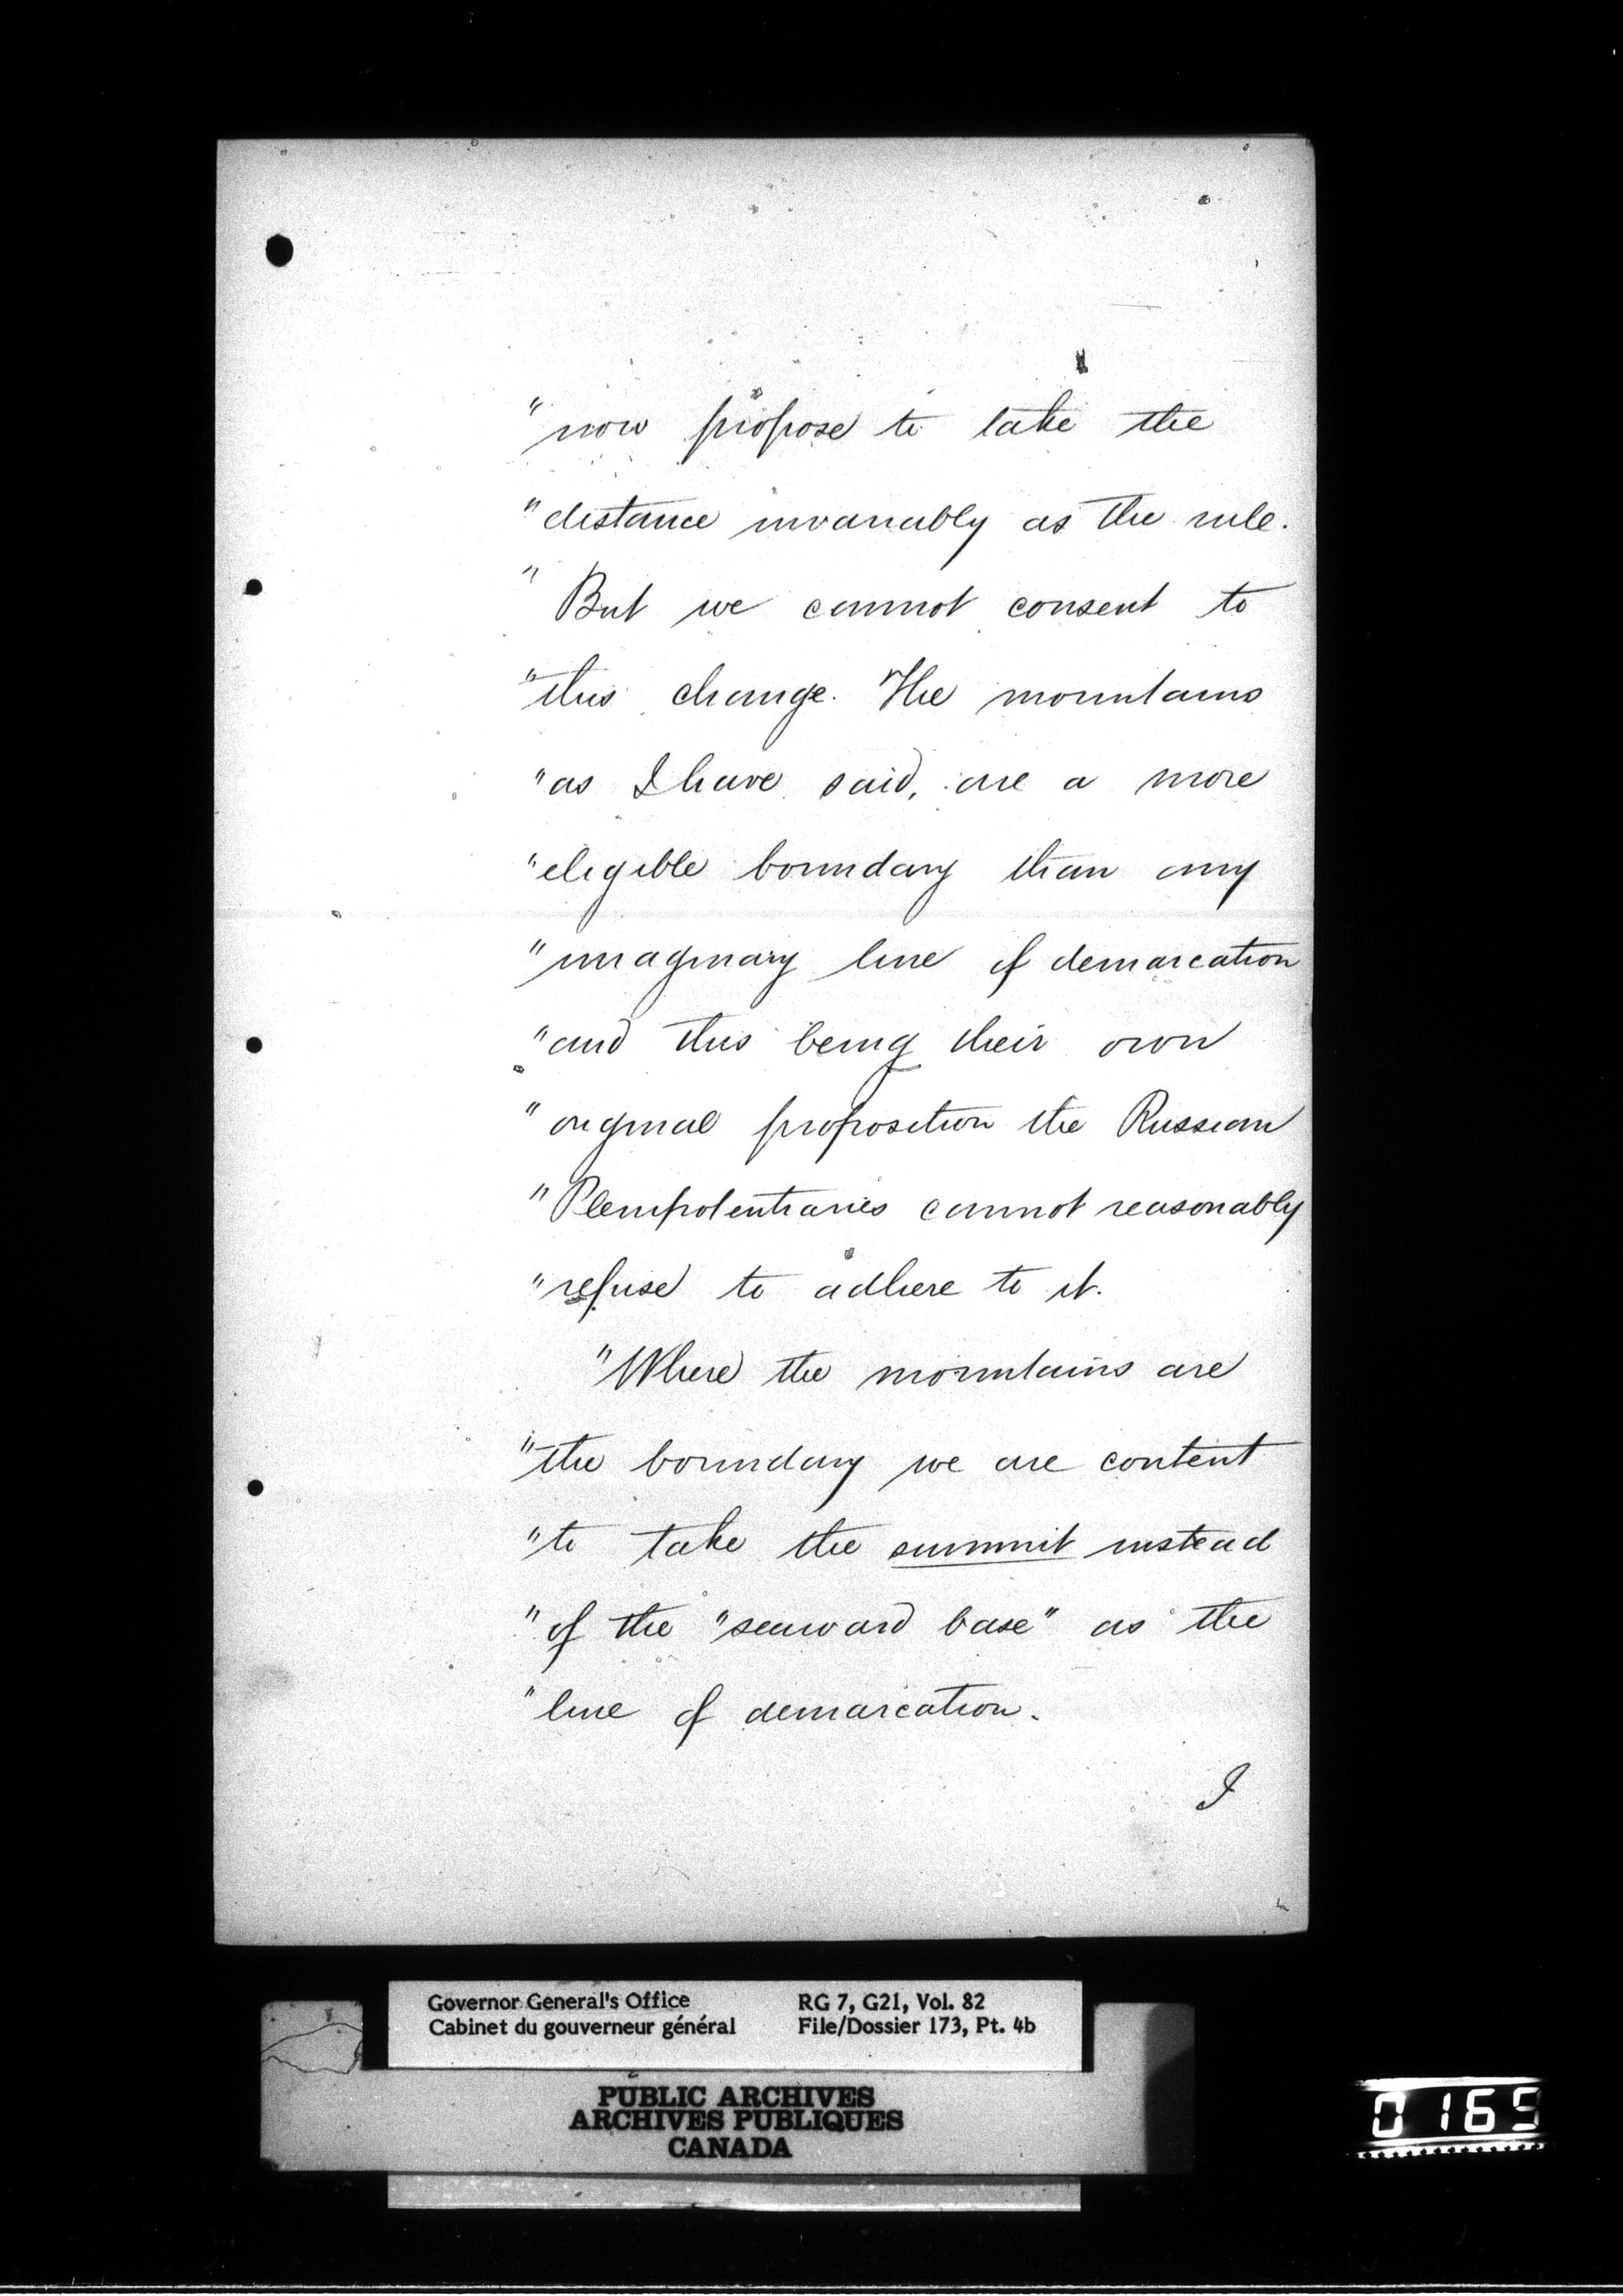 "now propose to take the
"distance invariably as the rule.
"But we cannot consent to
"this change. The mountains
"as I have said, are a more
"eligible boundary than any
"imaginary line of demarcation
"and this being their own
"original proposition the Russian
"Plenipotentiaries cannot reasonably
"refuse to adhere to it.
"Where the mountains are
"the boundary we are content
"to take the summit instead
"of the "seaward base" as the
"line of demarcation.
I
Governor General's Office RG 7, G21, Vol. 82
Cabinet du gouverneur général File/Dossier 173, Pt. 4b
PUBLIC ARCHIVES
ARCHIVES PUBLIQUES
CANADA
0165